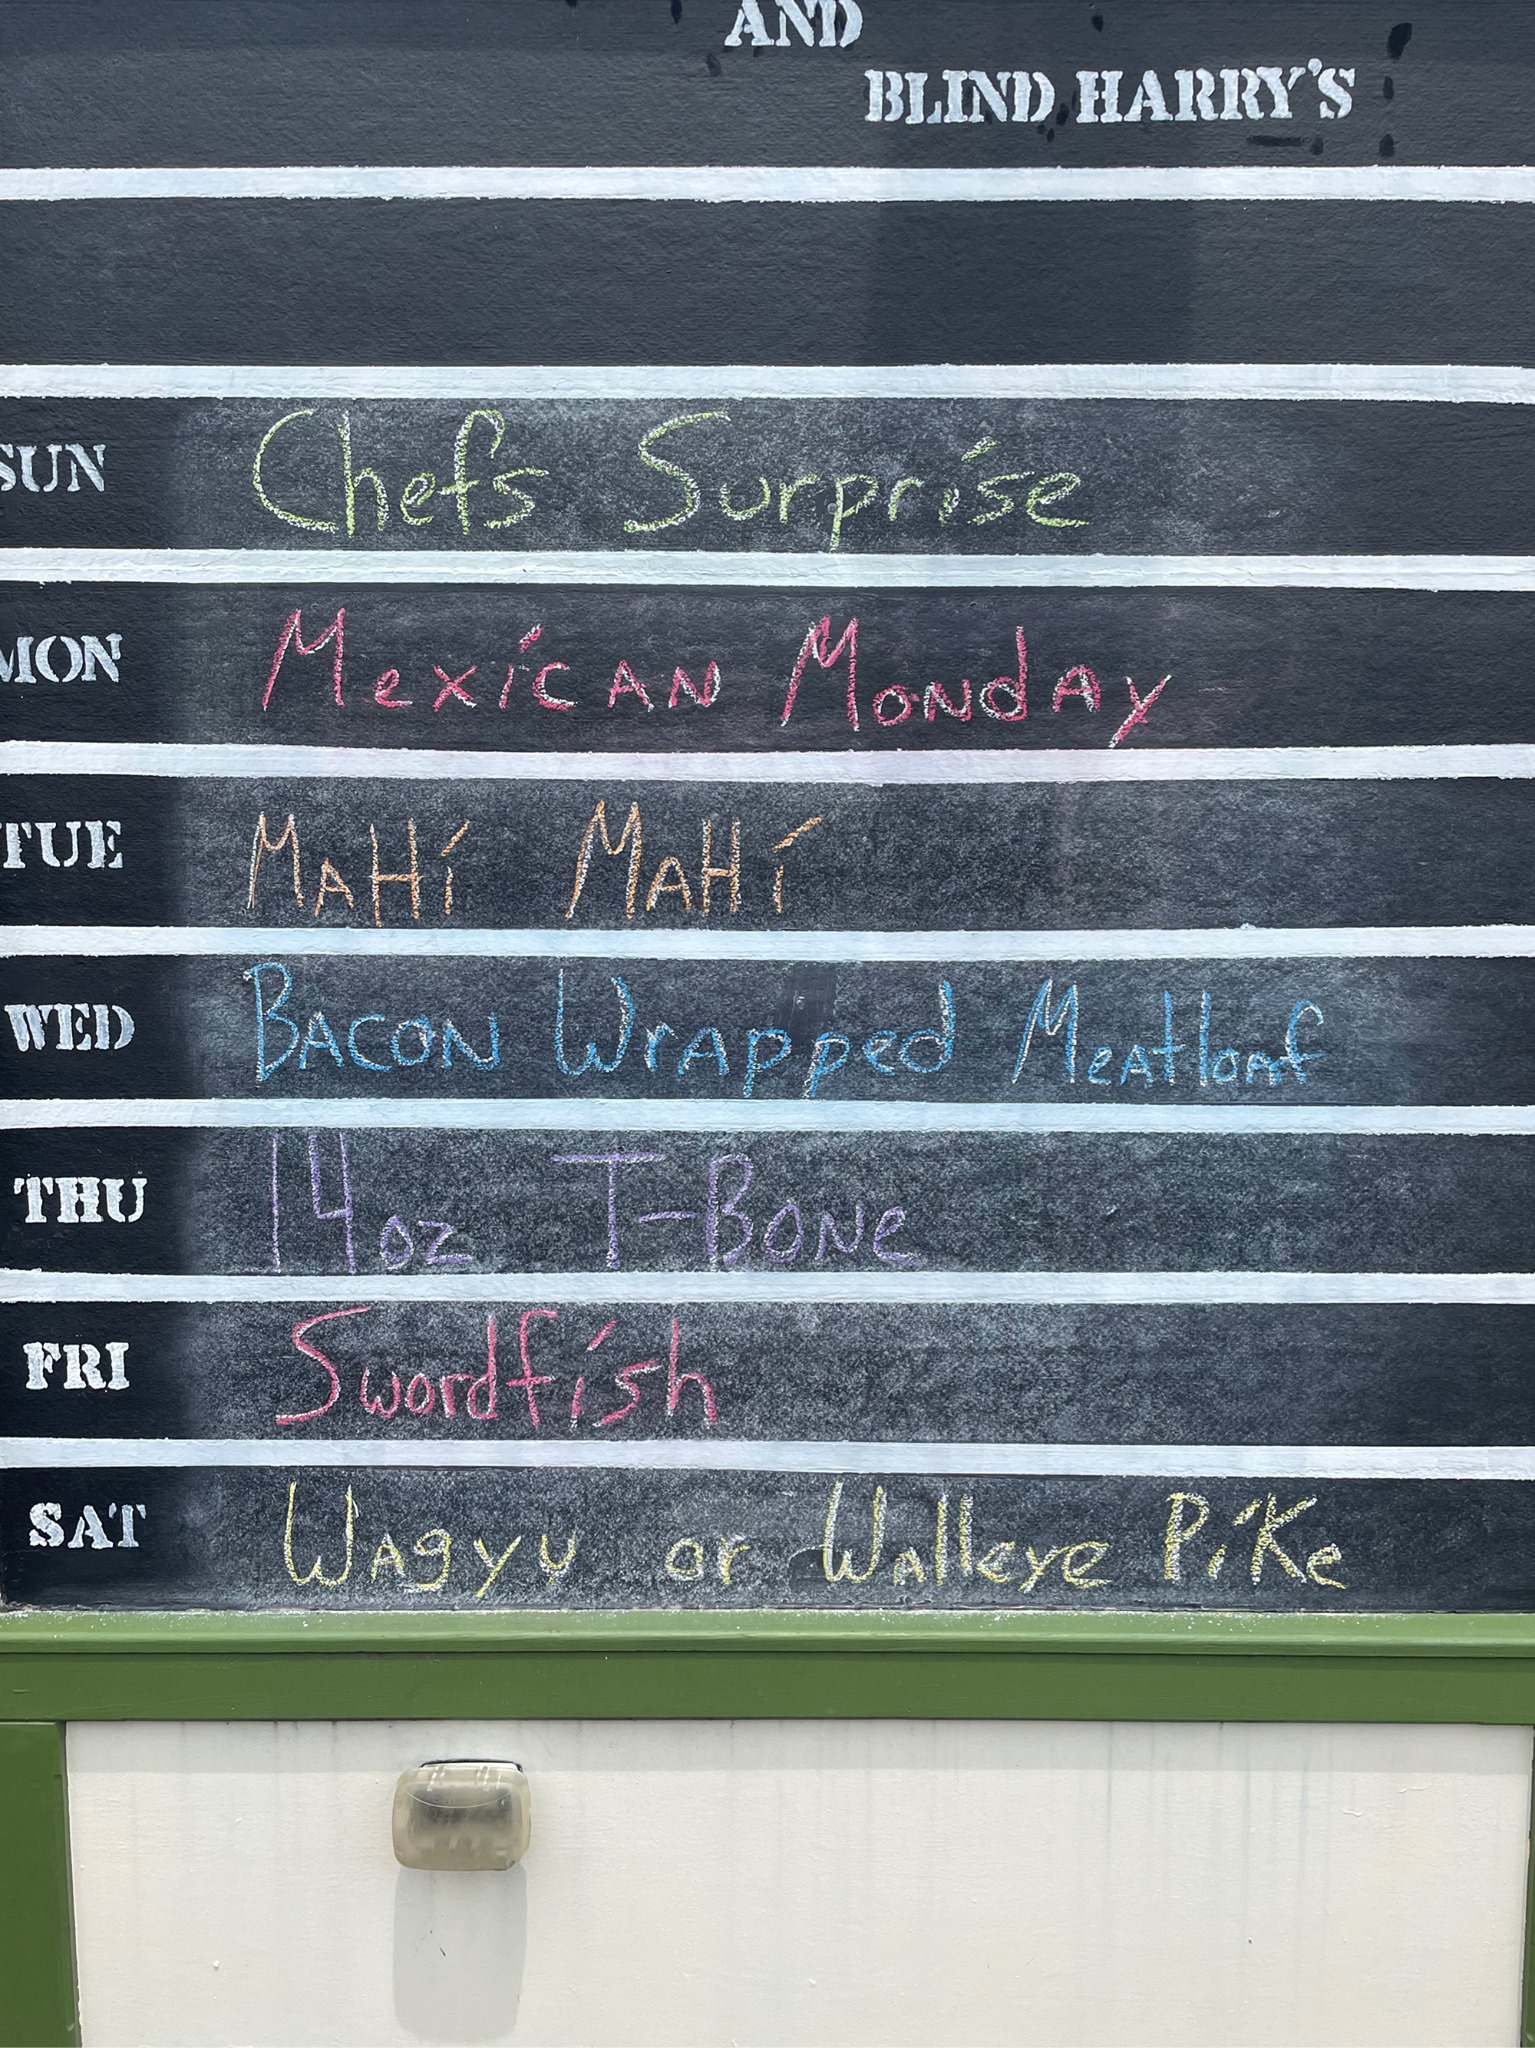 AND
BLIND HARRY'S
SUN Chefs Surprise
MON Mexican Monday
TUE Mahi Mahi
WED Bacon Wrapped Meatloaf
THU 14oz T-Bone
FRI Swordfish
SAT Wagyu or Walleye Pike